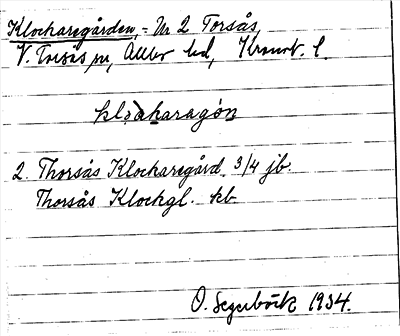 Klockaregården, = Nr 2 Torsås,
V. Torsås sn, Allbo hd, Kronob. l.
klɔkaragɔ́n
2. Thorsås Klockaregård. 3/4 jb.
Thorsås Klockgl. kb
O. Segerbäck 1934.